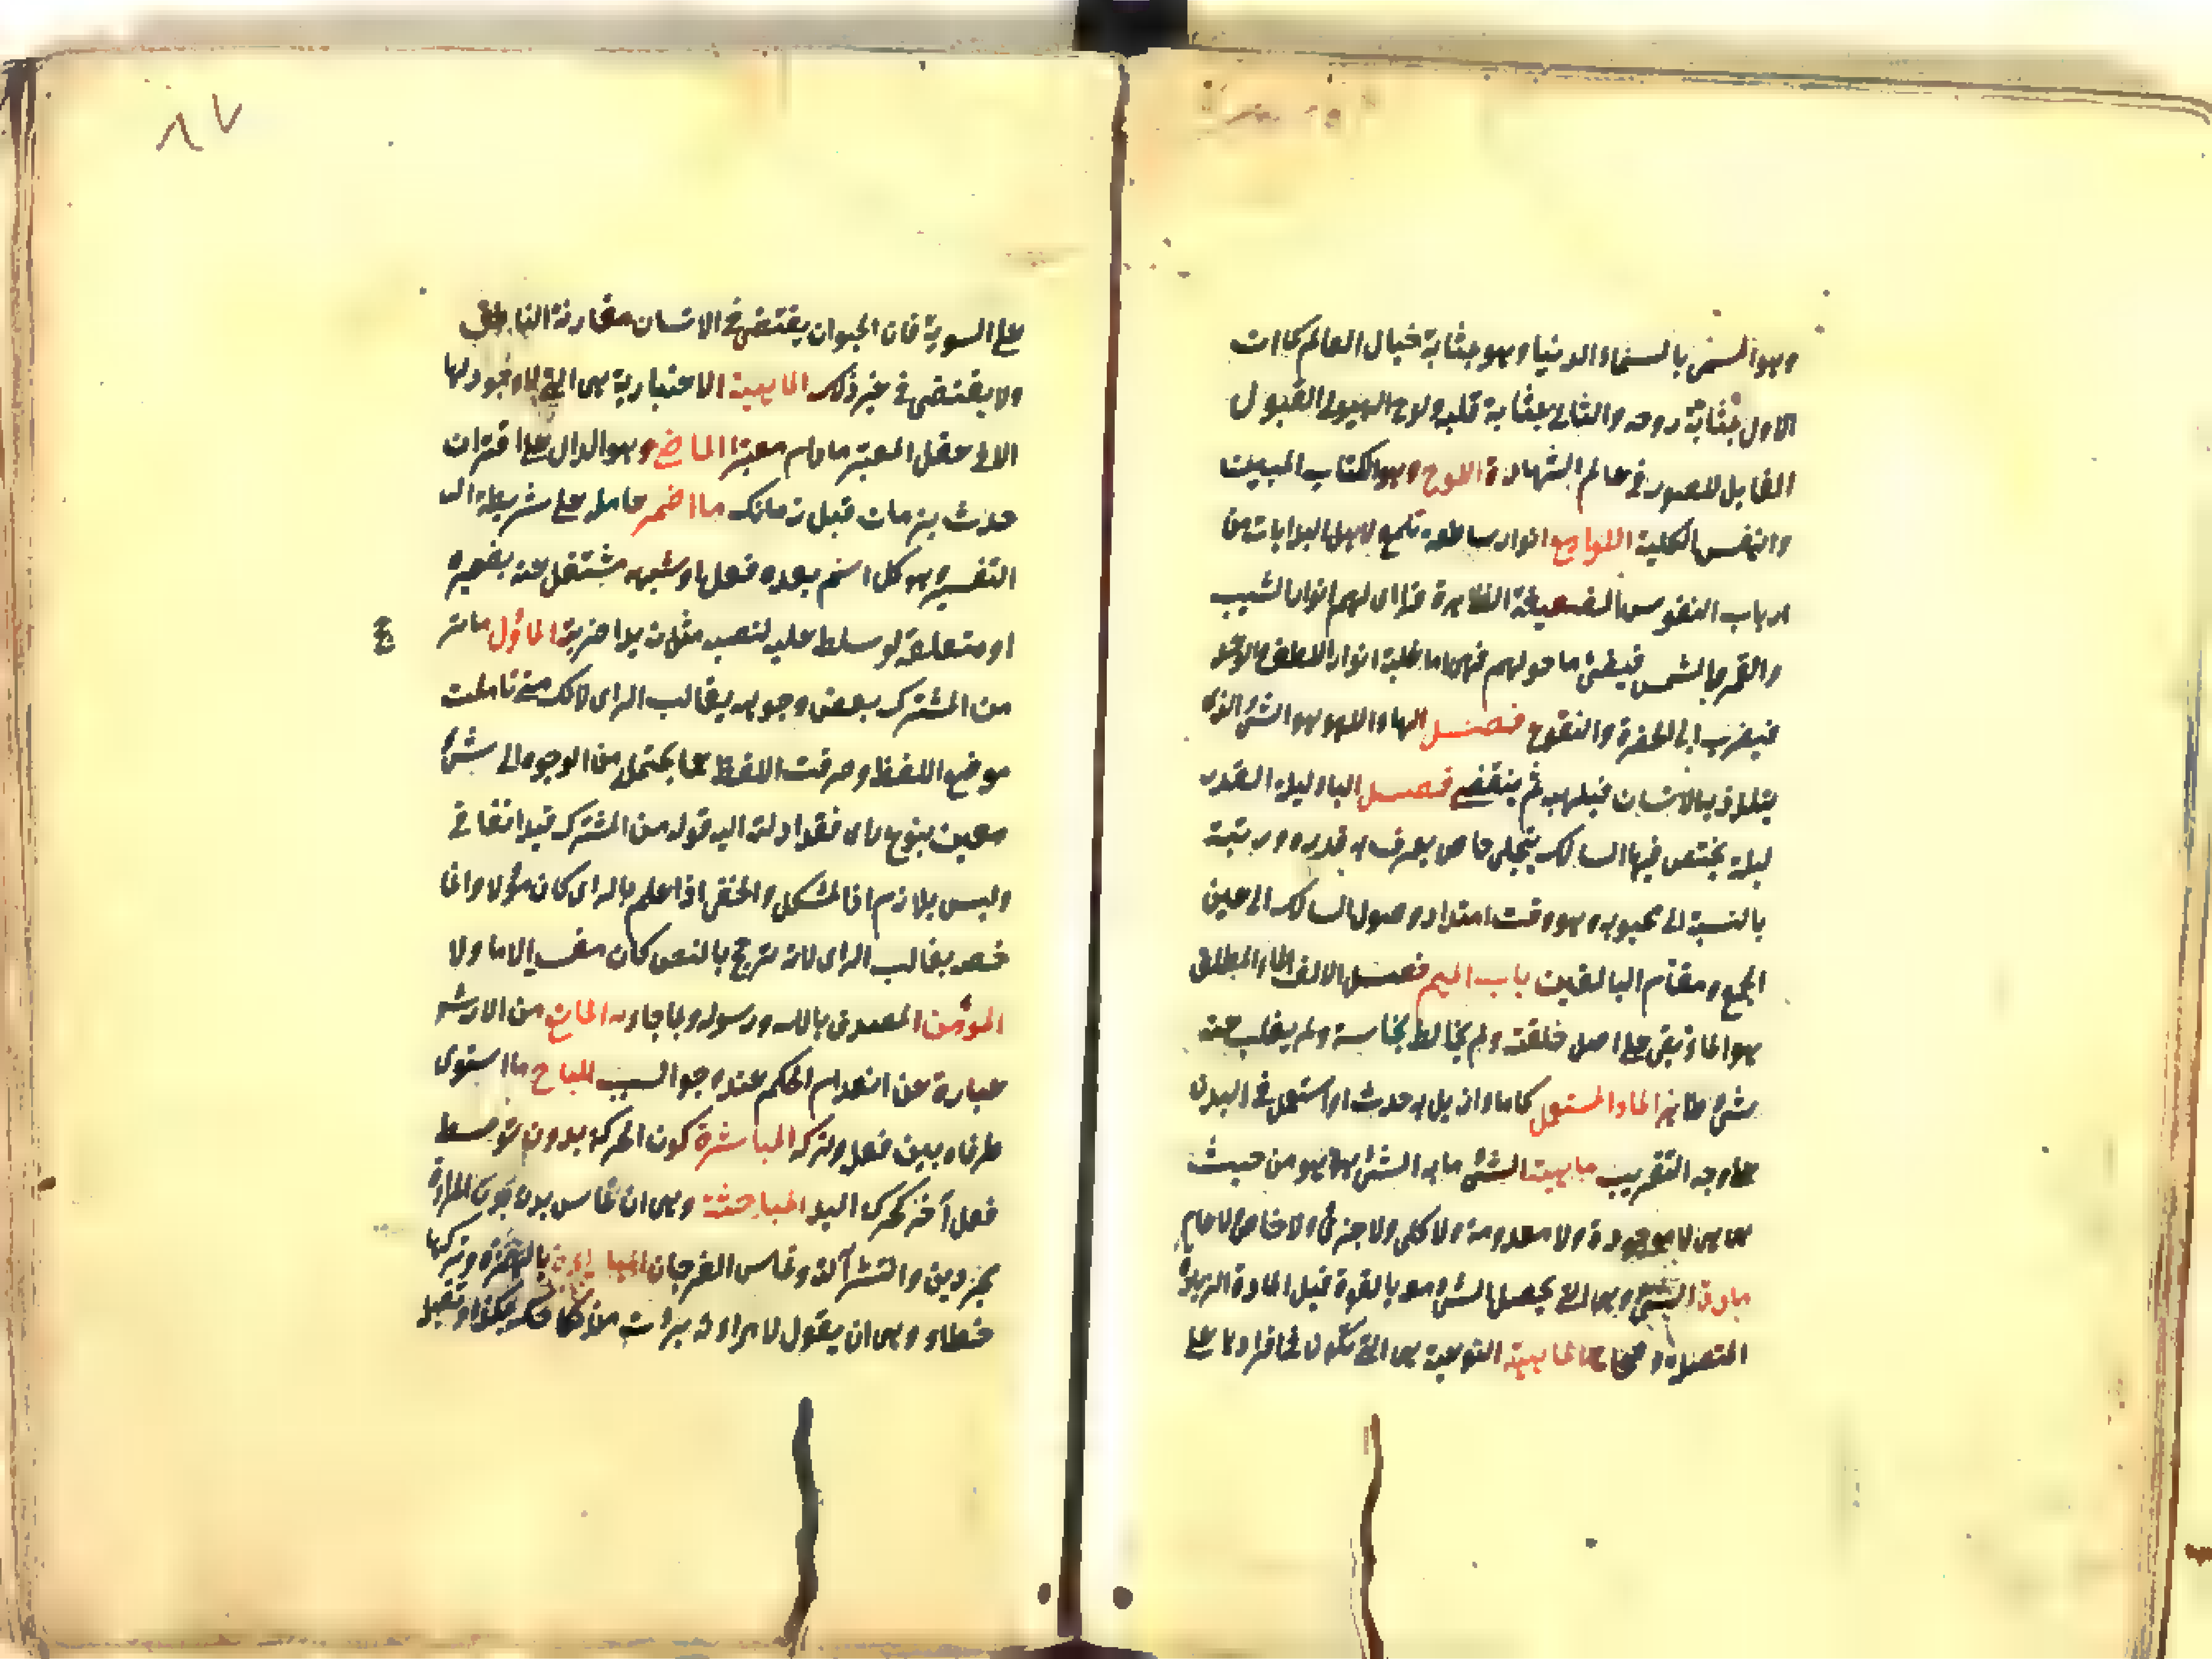 وهو المسمى بالسماء الدنيا وهو بمثابة خيال العالم كما ان
الاول بمثابة روحه والثاني بمثابة قلبه ولوح الهيولى القبول
القابل للصور في عالم الشهادة اللوح وهو الكتاب المبين
والنفس الكلية اللوامع انوار ساطعة تلمع لاهل البدايات من
ارباب النفوس الضعيفة الظاهرة فتراى لهم انوار الشهب
والقمر والشمس فيضئ ما حولهم فهى اما غلبة انوار اللطف والوعد
فيضرب الى الخضرة والنقوع فصل الهاء اللهو هو الشئ الذى
يتلذذ به الانسان فيلهيه ثم ينقضى فصل الياء ليلة القدر
ليلة يختص فيها السالك بتجلى خاص يعرف به قدره ورتبته
بالنسبة الى محبوبه وهو وقت ابتداء وصول السالك الى عين
الجمع ومقام البالغين باب الميم فصل الالف الماء المطلق
هو الماء بقى على اصل خلقته ولم يخالط نجاسة ولم يغلب عنه
شئ طاهر الماء المستعمل كل ماء ازيل به حدث او استعمل في البدن
على وجه التقرب ماهية الشئ ما به الشئ هو هو من حيث
هى هى لا موجودة ولا معدومة ولا كلى ولا جزئى ولا خاص ولا عام
مادة الشئ وهى التى يحصل الشئ معه بالقوة قيل المادة الزيادة
المتصلة الماهية النوعية هى التى تكون في افرادها على
٨٧
على السوية فان الحيوان يقتضى فى الانسان مقارنة الناطق
ولا يقتضى في غير ذلك الماهية الاعتبارية هى التى لا وجود لها
الا فى عقل المعتبر مادام معتبرا الماضى وهو الدال على اقتران
حدث بزمان قبل زمانك ما اضمر عامله على شريطة ال
التفسير هو كل اسم بعده فعل او شبهه مشتغل عنه بضميره
او متعلقه لو سلط عليه لنصبه مثل زيدا ضربته المأول ما تر
من المشترك بعض وجوهه بغالب الراى لانك متى تأملت
موضع اللفظ وصرفت اللفظ عما يحتمله من الوجوه الى شئ
معين بنوع راى فقد اولته اليه قوله من المشترك قيد اتفاقى
وليس بلازم اذ المشكل والخفى اذا علم بالراى كان مؤلا وانما
خصه بغالب الراى لانه لو ترجح بالنص كان مفسرا لا مأولا
المؤمن المصدق بالله ورسوله وبما جاء به المانع من الارث
عبارة عن انعدام الحكم عند وجو السبب المباح ما استوى
طرفاه بين فعله وتركه المباشرة كون الحركة بدون توسط
فعل آخر كحركة اليد المباحثة وهى ان تماس بدنه بدن المرأة
مجردين وانتشر آلته وتماس الفرجان المبارأة بالهمزة وتركها
خطاء وهى ان يقول لامراته برئت من نكاحك بكذا وتقبله